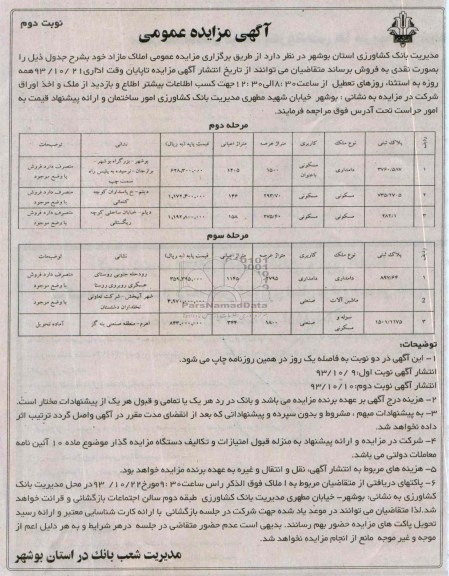 نوبت دوم
آگهی مزایده عمومی
مدیریت بانک کشاورزی استان بوشهر در نظر دارد از طریق برگزاری مزایده عمومی املاک مازاد خود بشرح جدول ذیل را
بصورت نقدی به فروش برساند متقاضیان می توانند از تاریخ انتشار آگهی مزایده تاپایان وقت اداری ۹۳/۱۰/۲۱همه
روزه به استثناء روزهای تعطیل از ساعت ۸:۳۰الی۱۲:۳۰جهت کسب اطلاعات بیشتر اطلاع و بازدید از ملک و اخذ اوراق
شرکت در مزایده به نشانی : بوشهر خیابان شهید مطهری مدیریت بانک کشاورزی امور ساختمان و ارائه پیشنهاد قیمت به
امور حراست تحت آدرس فوق مراجعه فرمایند.
مرحله دوم
ردیف پلاک ثبتی نوع ملک کاربری متراژ عرصه متراژ اعیانی قیمت پایه (به ریال) نشانی توضیحات
۱ دامداری مسکونی ۱۵۰۰ ۱۲۰۵ متصرف دارد فروش با وضع موجود
۲ مسکونی مسکونی ۲۹۳/۷۰ ۱۴۴ با وضع موجود
۳ ۲۸۲/۱ مسکونی مسکونی ۲۷۵/۴۰ ۱۵۸ متصرف دارد فروش با وضع موجود
مرحله سوم
ردیف پلاک ثبتی نوع ملک کاربری متراژ عرصه متراژ اعیانی قیمت پایه (به ریال) نشانی توضیحات
۱ دامداری دامداری ۱۱۴۵ رودحله جنوبی روستای عسکری روبروی روستا متصرف دارد فروش با وضع موجود
2 ماشین آلات صنعتی شهر آبپخش - شرکت تعاونی نخلداران دشتستان با وضع موجود
۳ ۱۵۰۱/۱۱۷۵ سوله و مسکونی صنعتی ۱۸۰۰ ۳۳۴ اهرم - منطقه صنعتی به گاز آماده تحویل
ParsNamadData
توضیحات:
۱- این آگهی در دو نوبت به فاصله یک روز در همین روزنامه چاپ می شود.
انتشار آگهی نوبت اول: ۹۳/۱۰/۹
انتشار آگهی نوبت دوم: ۹۳/۱۰/۱۰
۲- هزینه درج آگهی بر عهده برنده مزایده می باشد و بانک در رد هر یک یا تمامی و قبول هر یک از پیشنهادات مختار است.
۳- به پیشنهادات مبهم ، مشروط و بدون سپرده و پیشنهاداتی که بعد از انقضای مدت مقرر در آگهی واصل گردد ترتیب اثر
داده نخواهد شد.
۴- شرکت در مزایده و ارائه پیشنهاد به منزله قبول امتیازات و تکالیف دستگاه مزایده گذار موضوع ماده ۱۰ آئین نامه
معاملات دولتی می باشد.
۵- هزینه های مربوط به انتشار آگهی، نقل و انتقال و غیره به عهده برنده مزایده خواهد بود.
۶- پاکتهای دریافتی از متقاضیان مربوط به املاک فوق الذکر راس ساعت ۹:۳۰مورخ۹۳/۱۰/۲۲در محل مدیریت بانک
کشاورزی به نشانی: بوشهر- خیابان مطهری مدیریت بانک کشاورزی طبقه دوم سالن اجتماعات بازگشائی و قرائت خواهد
شد.لذا متقاضیان می توانند در موعد یاد شده جهت شرکت در جلسه بازگشائی با ارائه کارت شناسایی معتبر و ارائه رسید
تحویل پاکت های مزایده حضور بهم رسانند. بدیهی است عدم حضور متقاضی در جلسه درهر شرایط و به هر دلیل اعم از
موجه و غیر موجه مانع از انجام مزایده نخواهد شد.
مدیریت شعب بانک در استان بوشهر